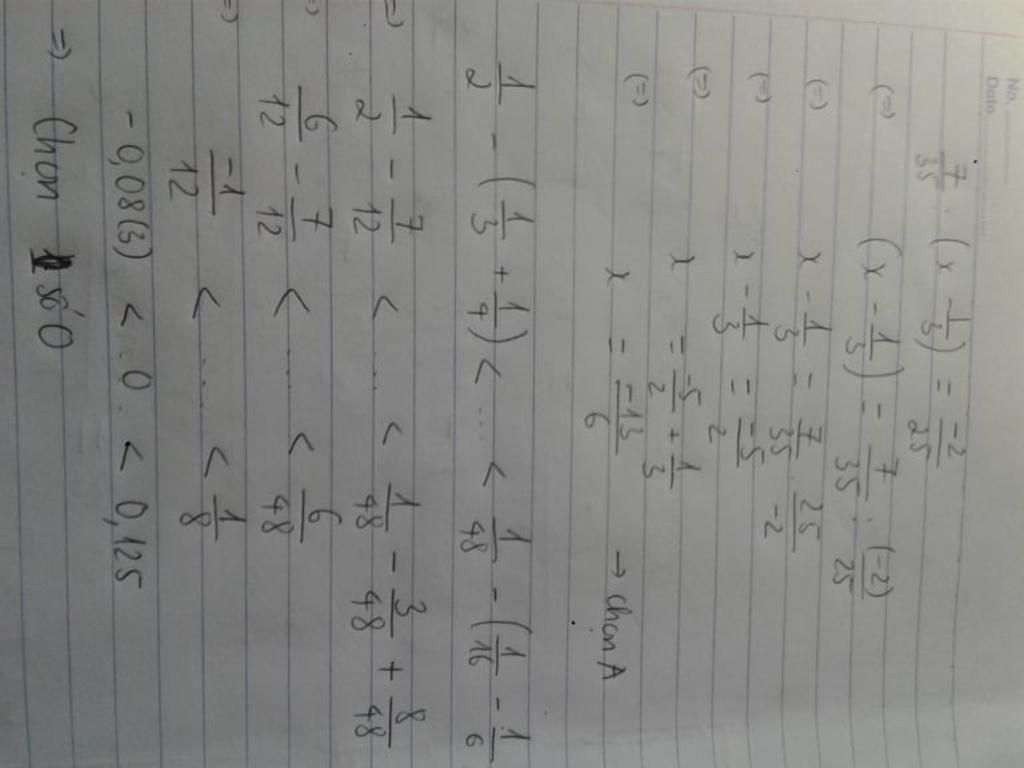 No.
Date
7/35 : (x - 1/3) = -2/25
(=) (x - 1/3) = 7/35 : (-2)/25
(=) x - 1/3 = 7/35 . 25/-2
(=) x - 1/3 = -5/2
(=) x = -5/2 + 1/3
(=) x = -13/6 → chọn A
1/2 - (1/3 + 1/4) < .... < 1/48 - (1/16 - 1/6
=) 1/2 - 7/12 < ..... < 1/48 - 3/48 + 8/48
=) 6/12 - 7/12 < ..... < 6/48
=) -1/12 < ..... < 1/8
- 0,08(3) < 0 < 0,125
=) Chọn số 0